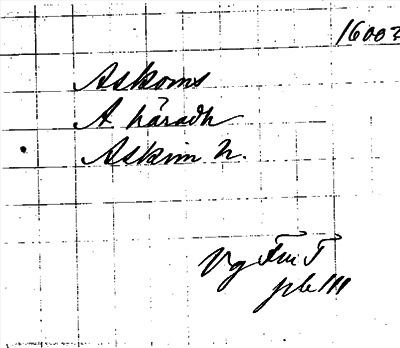 1600?
Askoms
A häradh
Askim h.
Vg Fru T
pb III